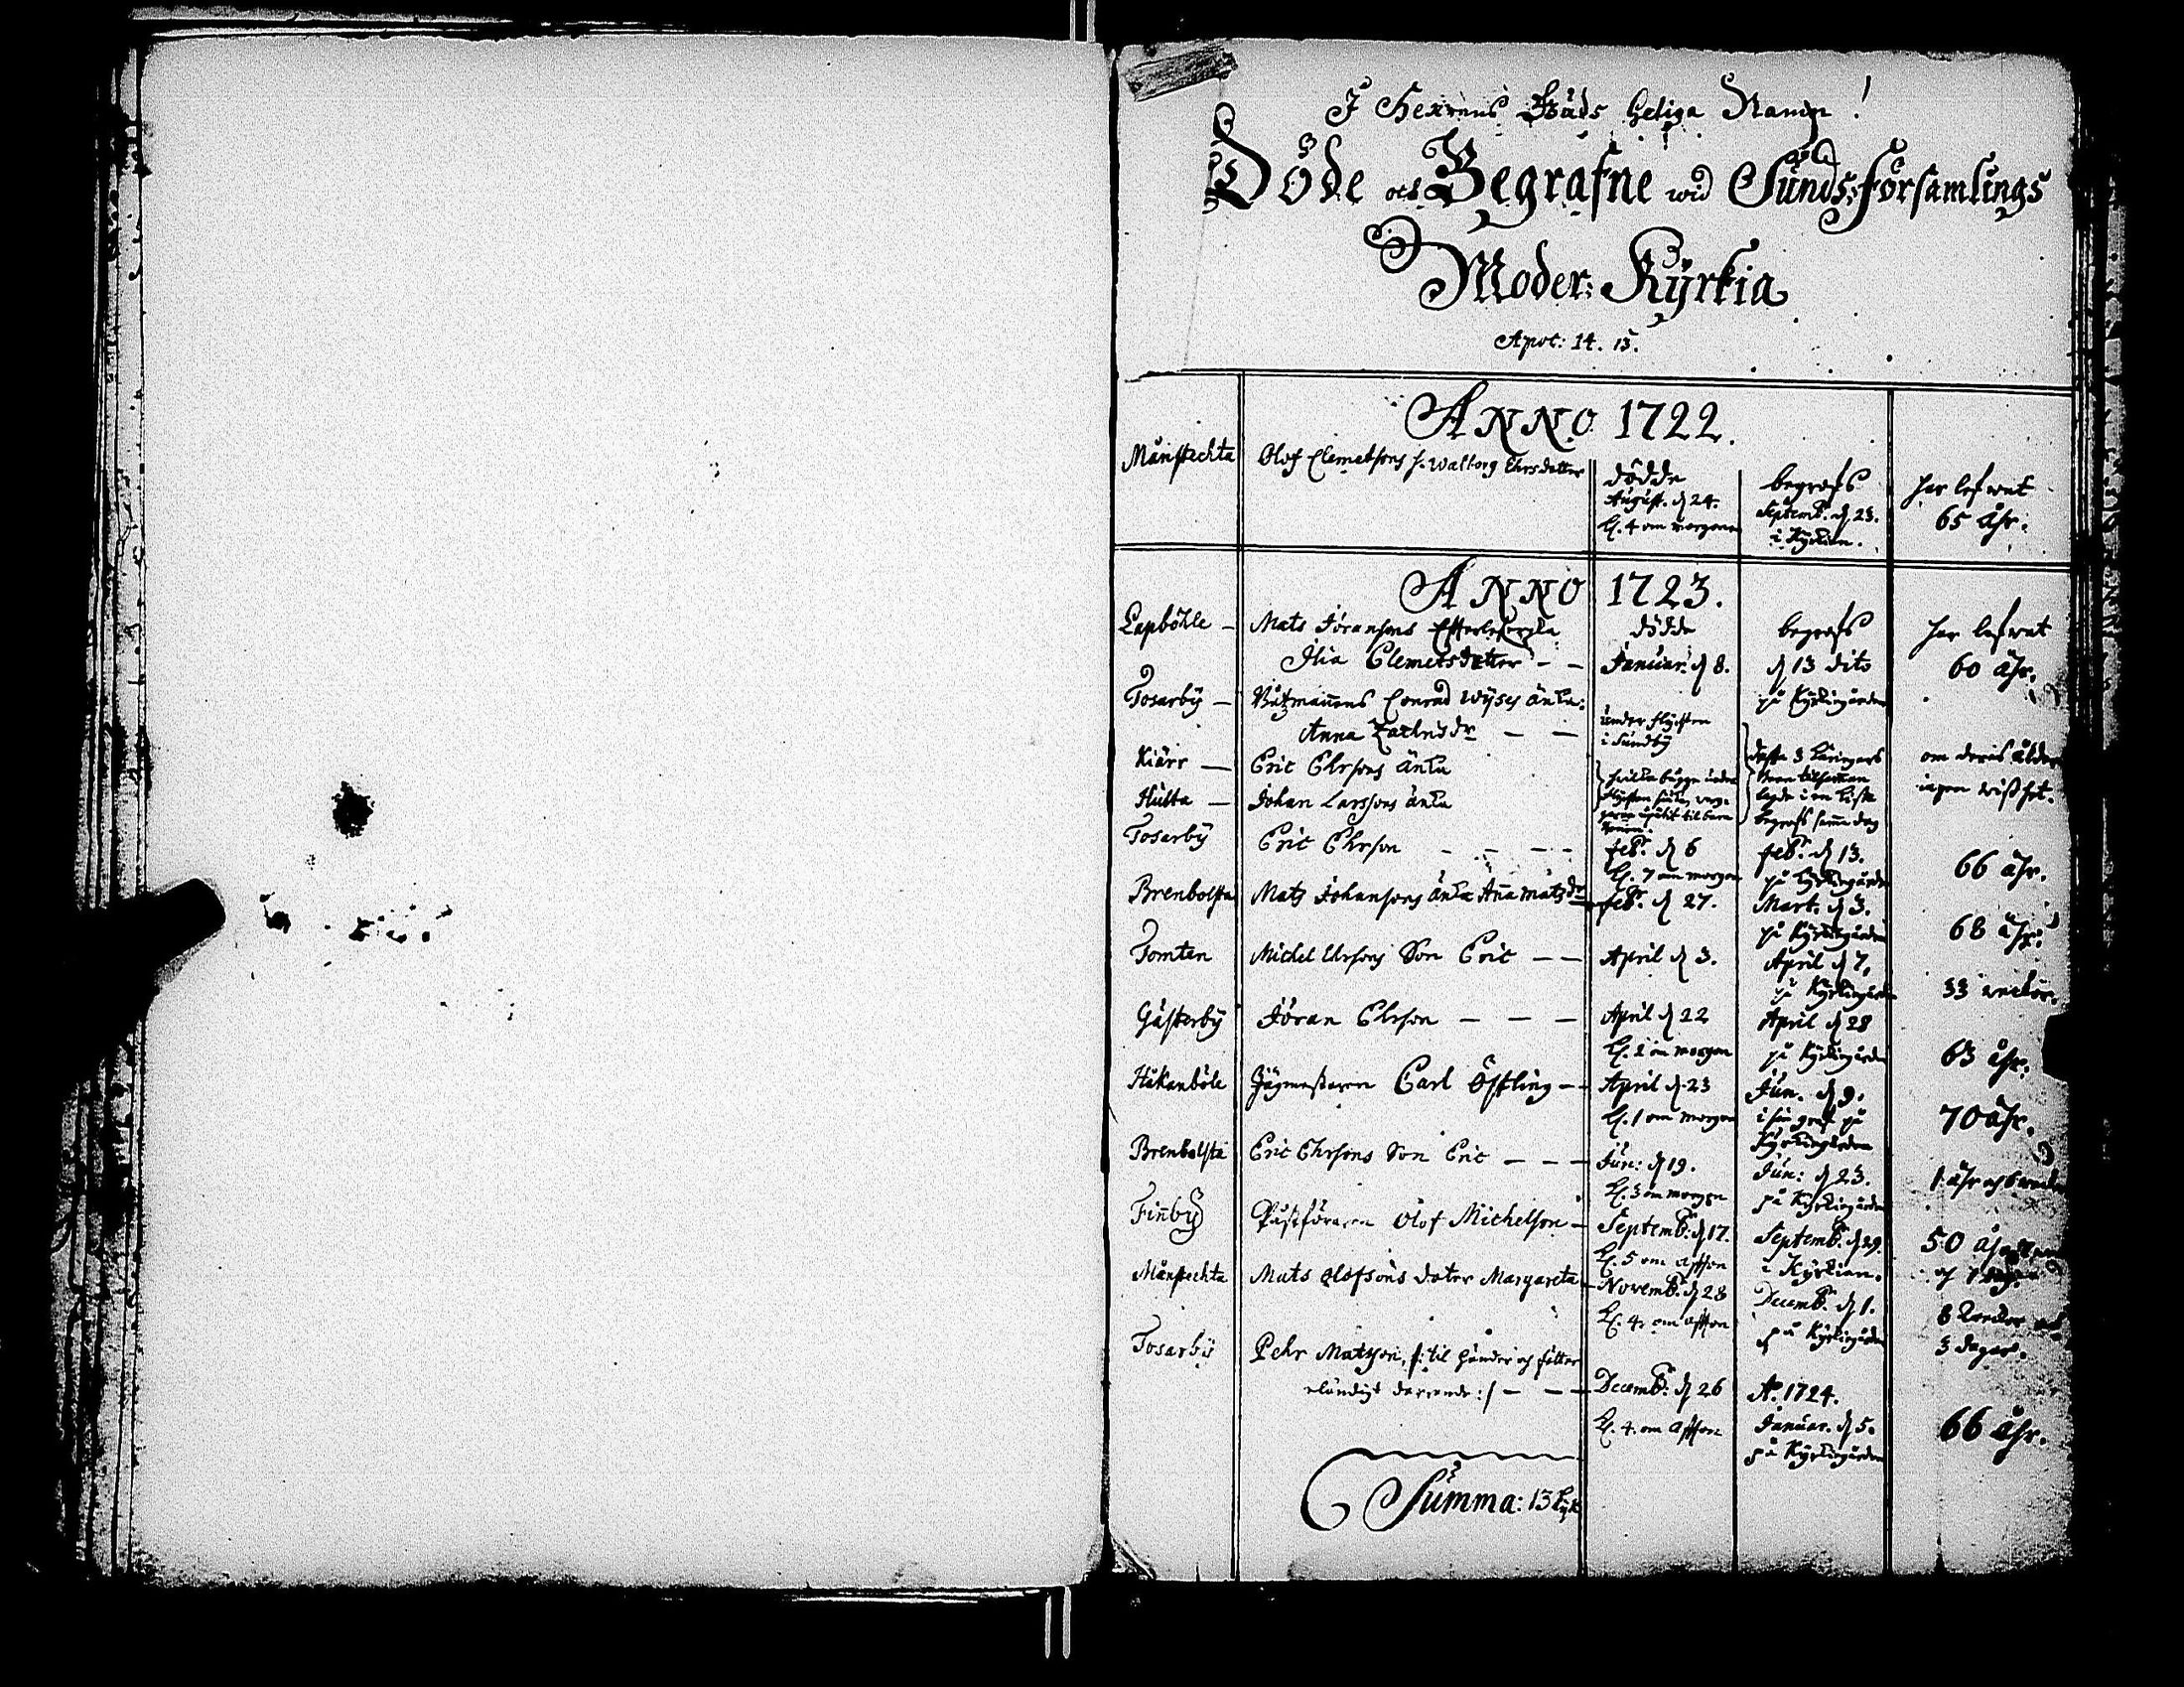 I Herrens Gudz heliga Namn!
Döde och Begrafne wid Sunds Församlings
Moder: Kyrkia
Apoc: 14. 13.
ANNO 1722.
Månstechta Olof Clemetsons h. Walborg Ehrsdotter dödde begrofs har lefwat
August. d 24. Septemb. d 23. 65 åhr.
kl. 4 om morgonen i Kyrkian.
ANNO 1723.
Lapböhle — Mats Jöransons Effterleferska dödde begrofs har lefwat
Clemetsdotter — — Januar. d 8. d 13 dito 60 åhr.
på Kyrkiogården
Tosarby — Båtzmannens Conrad änka: under flychten
Anna — — i Sundby
Kiärr — Eric Ehrsons änka
Hulta — Johan Larssons änka
om deris ålder
ingen wisshet.
begrofs samma dag
Tosarby Eric Ehrson — — — feb. d 6 feb. d 13. 66 åhr.
kl. 7 om morgon på Kyrkiogården
Brenbolsta Mats Johansons änka Anna Matsdr feb. d 27. Mart. d 3. 68 åhr.
på Kyrkiogården
Tomten Michel Ehrsons Son Eric — — April d 3. April d 7. 33 weckor.
på Kyrkiogården
Gästerby Jöran Ehrson — — — April d 22 April d 28 63 åhr.
om morgon på Kyrkiogården
Håkanböle Jägmestaren Carl Östling — April d 23 Jun. d 9. 70 åhr.
kl. 1 om morgon i sin graf på
Kyrkiogården
Brenbolsta Eric Ehrsons Son Eric — — — Jun: d 19. Jun: d 23. 1 åhr och 6 weckor
kl. 3 om morgon på Kyrkiogården
Finby Påstföraren Olof Michelson — Septemb. d 17. Septemb. d 29. 50 åhr
kl. 5 om afton i Kyrkian.
Månstechta Mats Olofsons doter Margareta — Novemb. d 28 Decemb. d 1. 8 weckor och
kl. 4 om afton på Kyrkiogården 3 dagar.
Tosarby Pehr Matson, /: til händer och fötter
eländigt :/ — — — Decemb. d 26 Ao. 1724.
kl. 4. om afton Januar. d 5. 66 åhr.
på Kyrkiogården
Summa: 13 Lijk